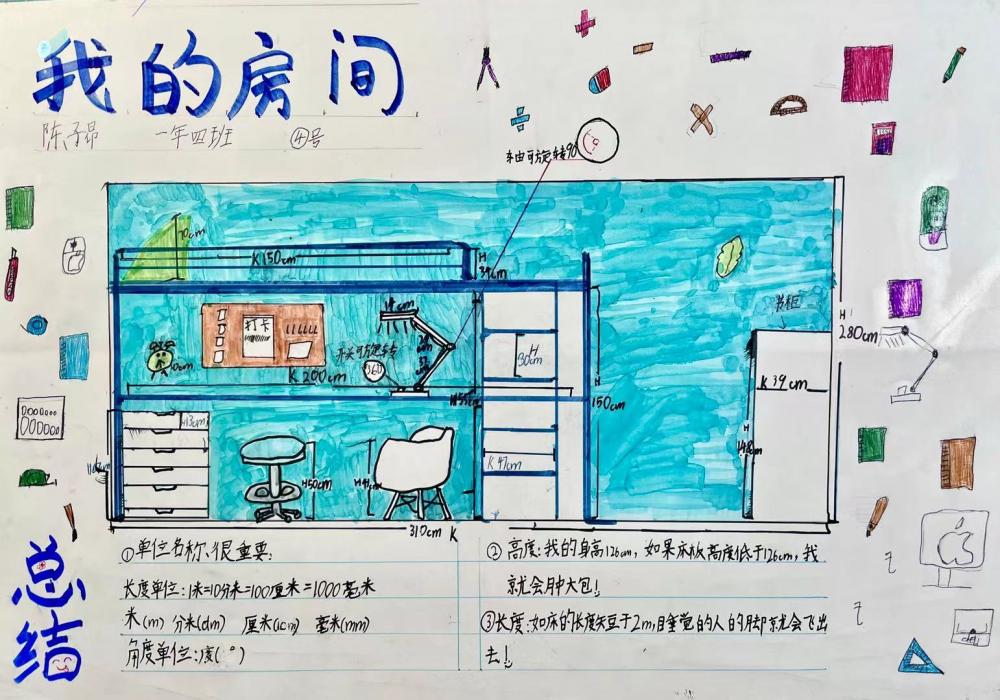 我的房间
陈子昂 一年四班 ④号
轴可旋转90°
70cm
K150cm
H
34cm
打卡
18cm
开关可旋转
360
K 200cm
10cm
H
30cm
H
150cm
书柜
H
280cm
K 39cm
H
148cm
H13cm
H50cm
K 47cm
310cm K
总结
①单位名称、很重要:
长度单位:1米=10分米=100厘米=1000毫米
米(m) 分米(dm) 厘米(cm) 毫米(mm)
角度单位:度(°)
②高度:我的身高126cm,如果床板高度低于126cm,我
就会肿大包!
③长度:如床的长度矢豆于2m,目垂觉的人的脚就会飞出
去!